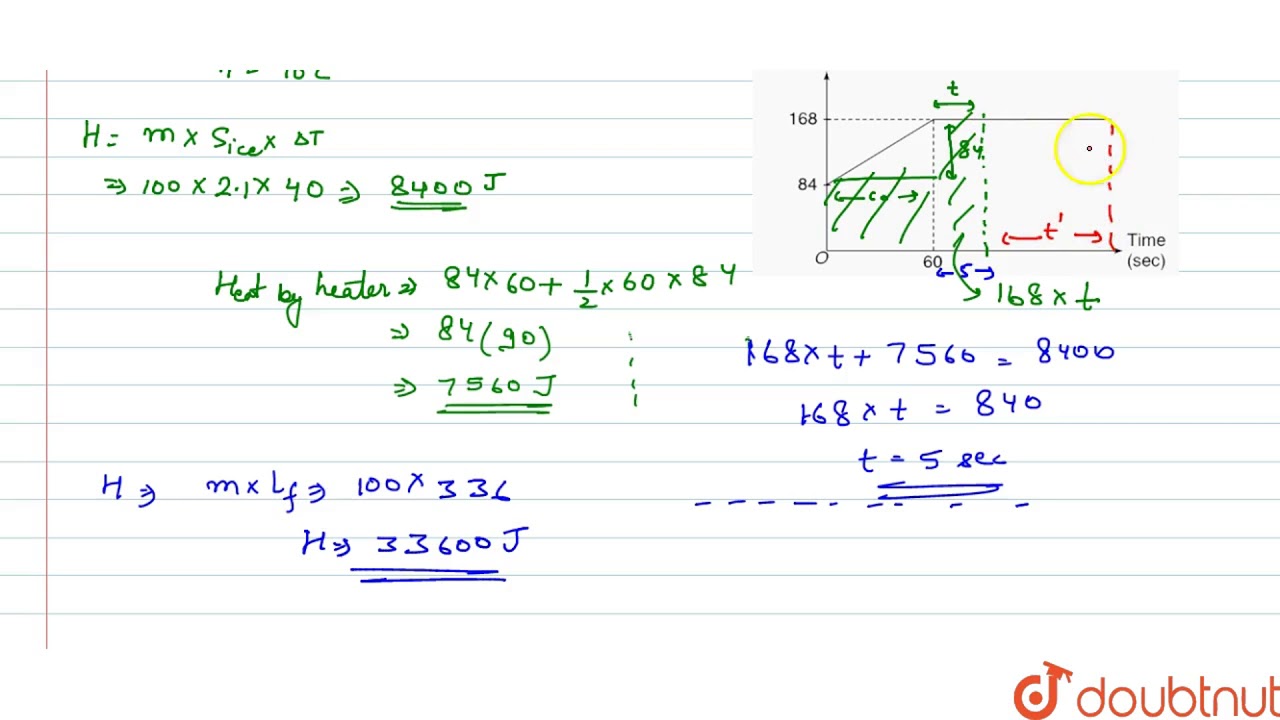 H = m × Sice × ΔT
⇒ 100 × 2.1 × 40 ⇒ 8400 J
Heat by heater ⇒ 84 × 60 + 1/2 × 60 × 84
⇒ 84 (90)
⇒ 7560 J
H ⇒ m × Lf ⇒ 100 × 336
H ⇒ 33600 J
t
168
84
84
60
t'
O
60
5
Time
(sec)
168 × t
168 × t + 7560 = 8400
168 × t = 840
t = 5 sec
doubtnut